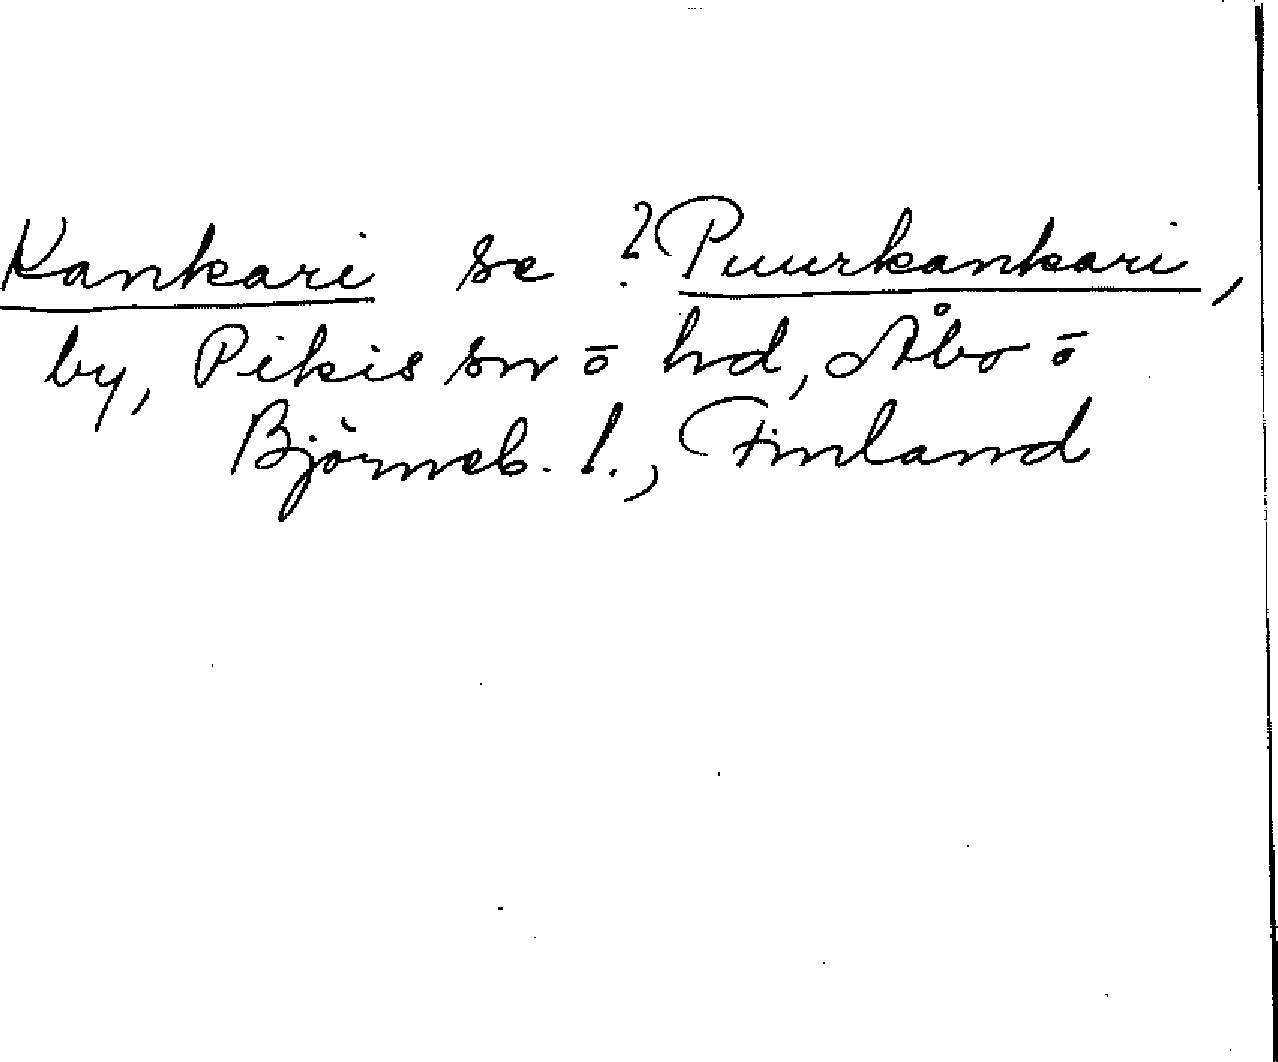 Kankari se ? Puurkankari,
by, Pikis sn ō hd, Åbo ō
Björneb. l., Finland